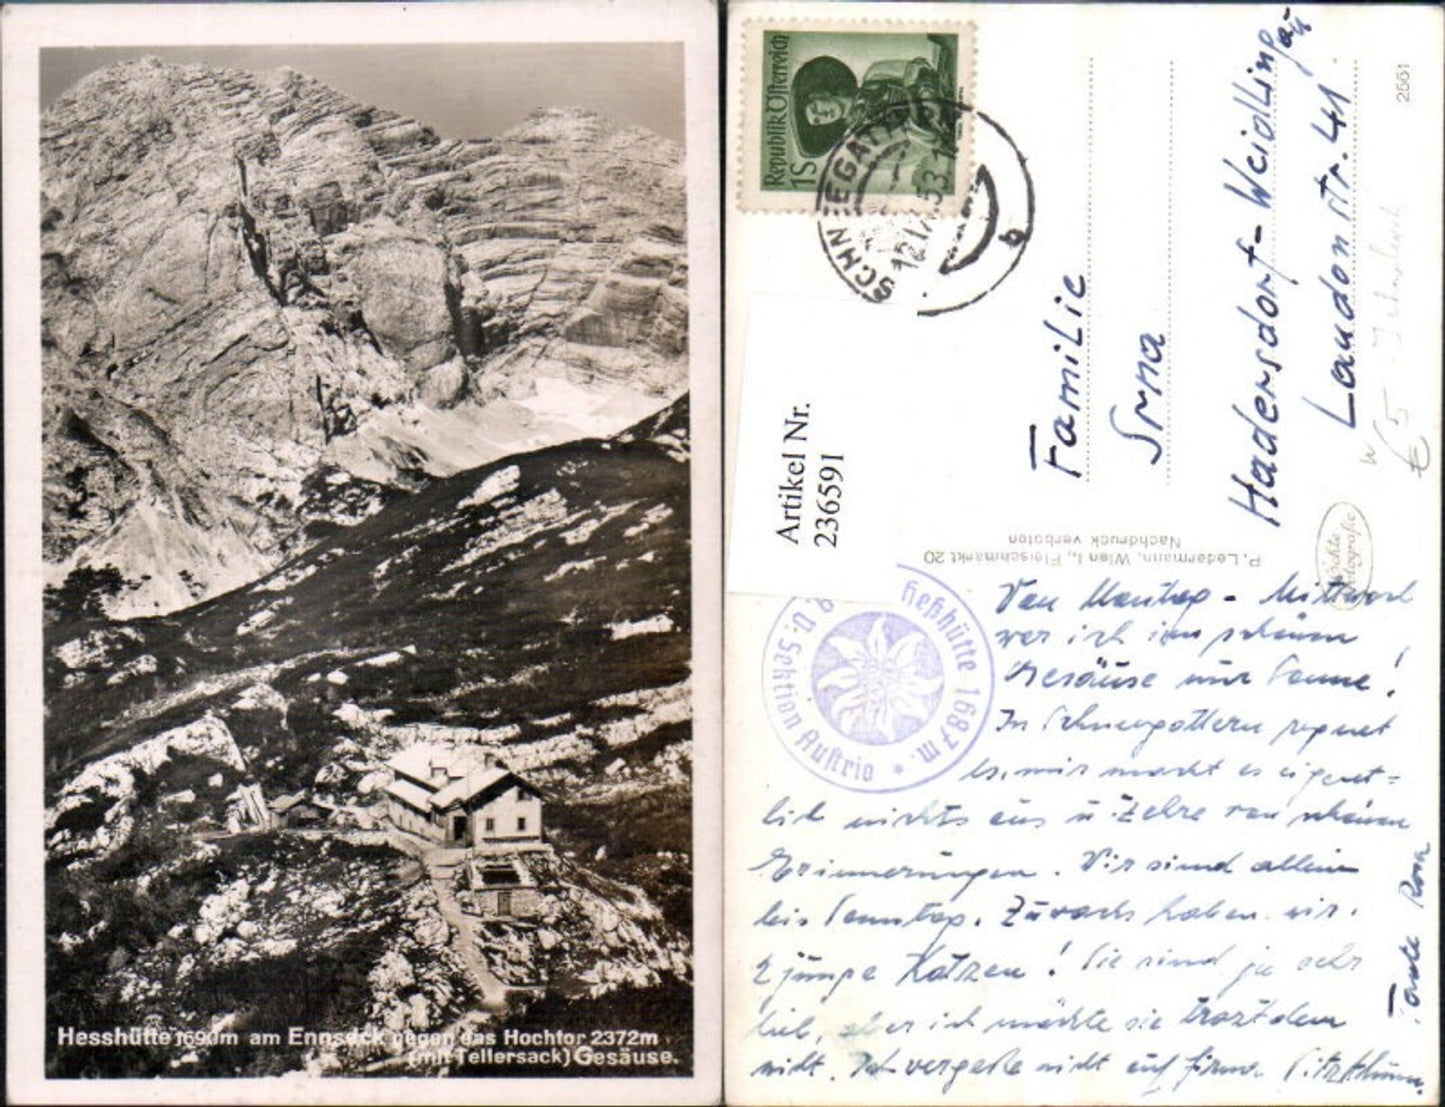 Hesshütte 1690m am Ennseck gegen das Hochtor 2372m
(mit Tellersack) Gesäuse.
Republik Österreich
1S
SCHNEEGATTERN
12.IX.53.1
b
Artikel Nr.
236591
Familie
Srna
Hadersdorf-Weidlingau
Laudonstr. 41.
2551
€ 5
P. Ledermann, Wien I., Fleischmarkt 20
Nachdruck verboten
Echte
Fotografie
Heßhütte 1687 m.
Sektion Austria
Von Montag - Mittwoch
war ich im schönen
Gesäuse nur Sonne!
In Schneegattern regnet
es, mir macht es eigent=
lich nichts aus u. Zehre von schönen
Erinnerungen. Wir sind allein
bis Sonntag. Zuwachs haben wir.
2 junge Katzen! Sie sind ja sehr
lieb, aber ich möchte sie trotzdem
nicht. Ich vergesse nicht auf Firma
Tante Rosa